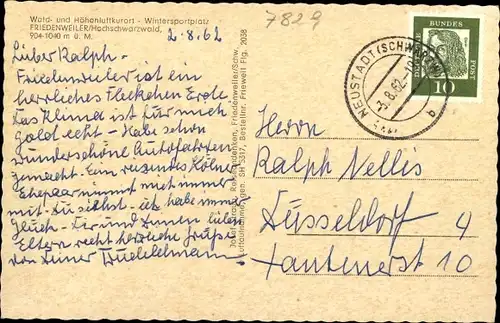 Wald- und Höhenluftkurort - Wintersportplatz
FRIEDENWEILER/Hochschwarzwald,
904-1040 m ü. M.
2.8.62
7829
Lieber Ralph -
Friedenweiler ist ein
herrliches Fleckchen Erde
Das Klima ist für mich
gold echt - Habe schon
wunderschöne Autofahrten
gemacht. Ein reizendes Kölner
Ehepaar nimmt mich immer
mit. Du siehst - ich habe immer
Glück - Dir und Deinen lieben
Eltern recht herzliche Grüße
von Deiner
Friedenweiler/Schw.
Bestellnr. Friewei1 Flg. 2038
DEUTSCHE
BUNDES
POST
10
NEUSTADT (SCHWARZW)
-3.8.62
Herrn
Ralph Nellis
Düsseldorf 4
Xantenerst 10